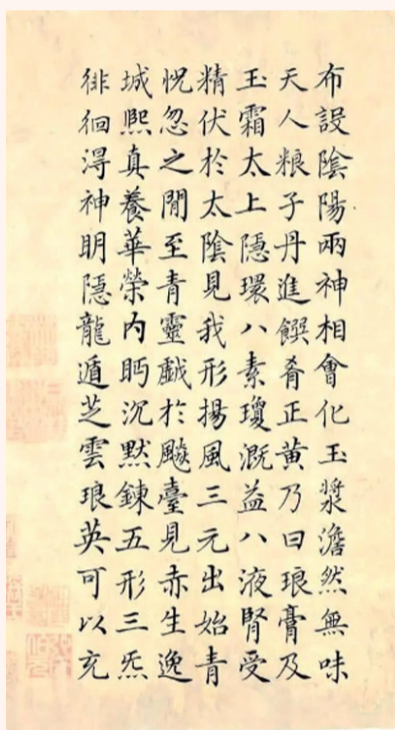 布設陰陽兩神相會化玉漿澹然無味
天人粮子丹進饌肴正黄乃曰琅膏及
玉霜太上隱環八素瓊溉益八液腎受
精伏於太陰見我形揚風三元出始青
怳忽之閒至青靈戱於飈臺見赤生逸
城熈真養華榮内眄沉默鍊五形三炁
徘徊淂神眀隱龍遁芝雲琅英可以充